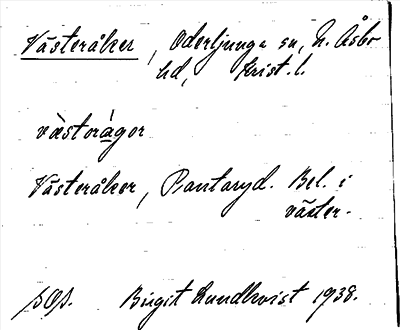 Västeråker, Oderljunga sn, N. Åsbo
hd, Krist. l.
västerágor
Västeråker, Rantaryd. Bel. i
väster.
Birgit Lundkvist 1938.